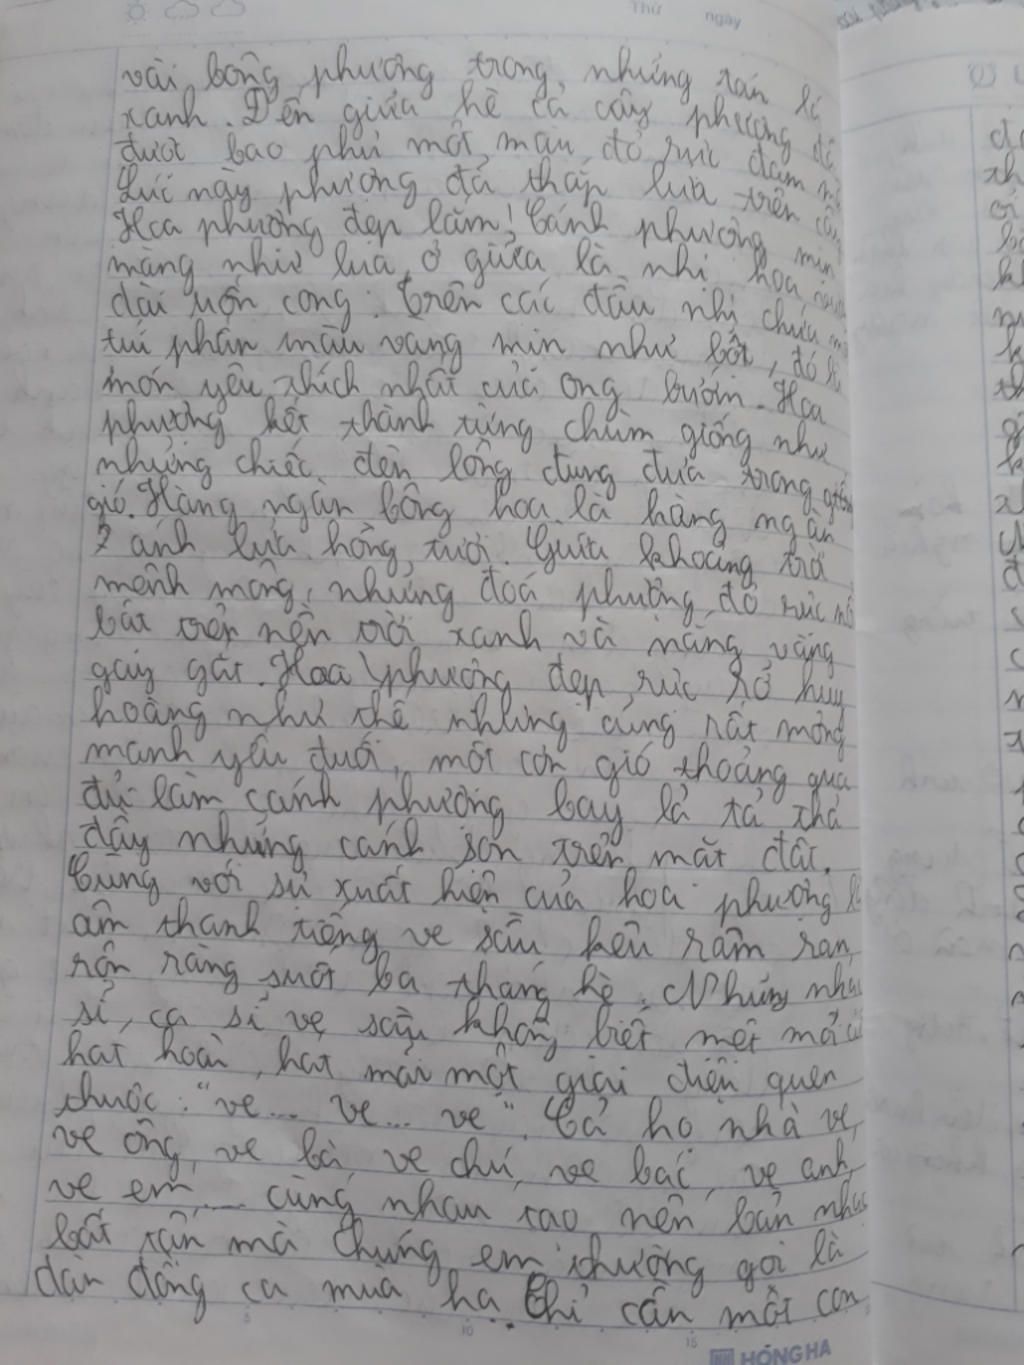 Thứ ngày
vài bông phượng trong những tán lá
xanh. Đến giữa hè cả cây phượng đã
được bao phủ một màu đỏ rực đam mê
Lúc này phượng đã thắp lửa trên cành
Hoa phượng đẹp lắm! Cánh phượng mịn
màng như lụa, ở giữa là nhị hoa
dài uốn cong. Trên các đầu nhị chứa một
túi phấn màu vàng mịn như bột, đó là
món yêu thích nhất của ong bướm. Hoa
phượng kết thành từng chùm giống như
những chiếc đèn lồng đung đưa trong
gió. Hàng ngàn bông hoa là hàng ngàn
ánh lửa hồng tươi. Giữa khoảng trời
mênh mông, những đoá phượng đỏ rực
bật trên nền trời xanh và nắng vàng
gay gắt. Hoa phượng đẹp rực rỡ huy
hoàng như thế nhưng cũng rất mỏng
manh yếu đuối, một cơn gió thoảng qua
đủ làm cánh phượng bay lả tả thả
đầy những cánh son trên mặt đất.
Cùng với sự xuất hiện của hoa phượng là
âm thanh tiếng ve sầu kêu râm ran,
rộn ràng suốt ba tháng hè. Những nhạc
sĩ, ca sĩ ve sầu không biết mệt mỏi cứ
hát hoài, hát mãi một giai điệu quen
thuộc: "ve... ve... ve". Cả họ nhà ve,
ve ông, ve bà, ve chú, ve bác, ve anh,
ve em..... cùng nhau tạo nên bản nhạc
bất tận mà chúng em thường gọi là
dàn đồng ca mùa hạ. Chỉ cần một con
5 10 15
HỒNG HÀ